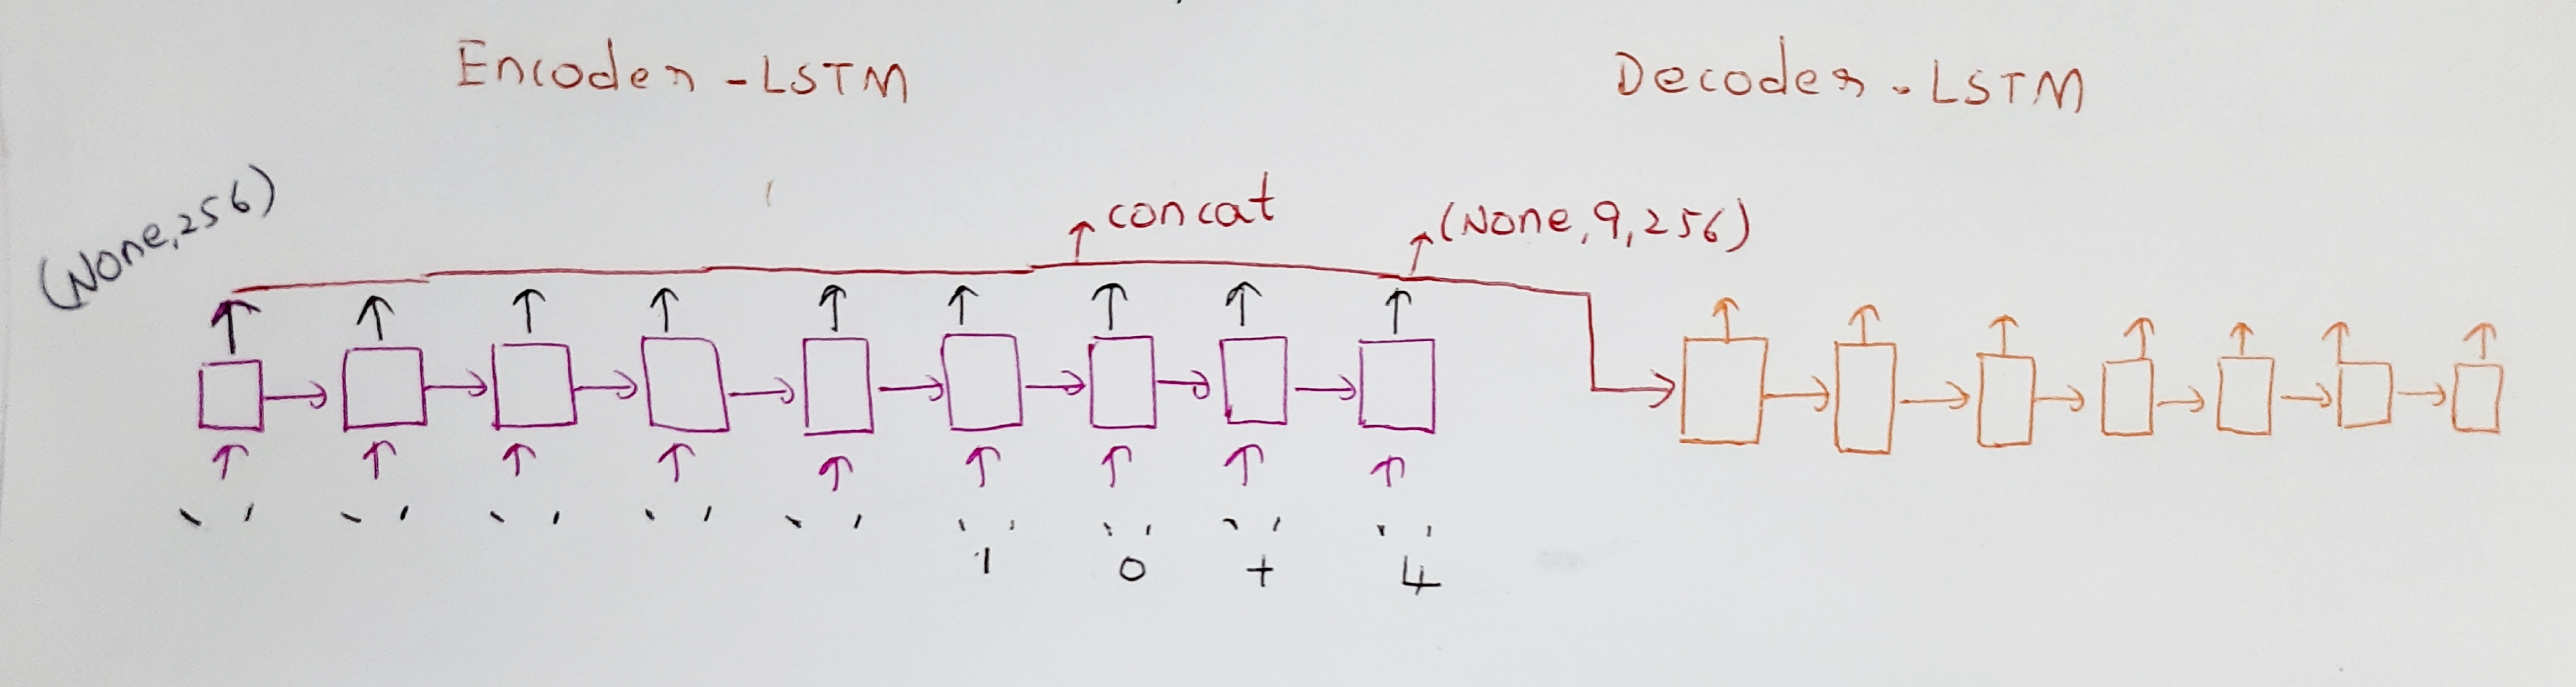 Encoder - LSTM
Decoder - LSTM
(None, 256)
concat
(None, 9, 256)
' ' ' ' ' ' ' ' ' ' ' ' ' ' ' ' ' '
1 0 + 4